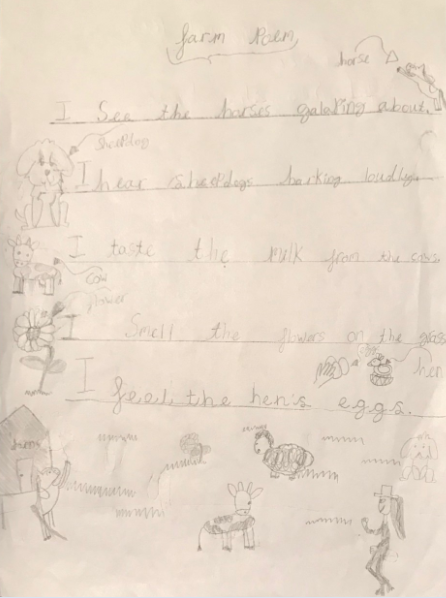 farm Poem
horse
I See the horses galoping about.
sheepdog
I hear sheepdogs barking loudly.
I taste the milk from the cows
cow
flower
I Smell the flowers on the grass
hen
I feel the hen's eggs.
farm